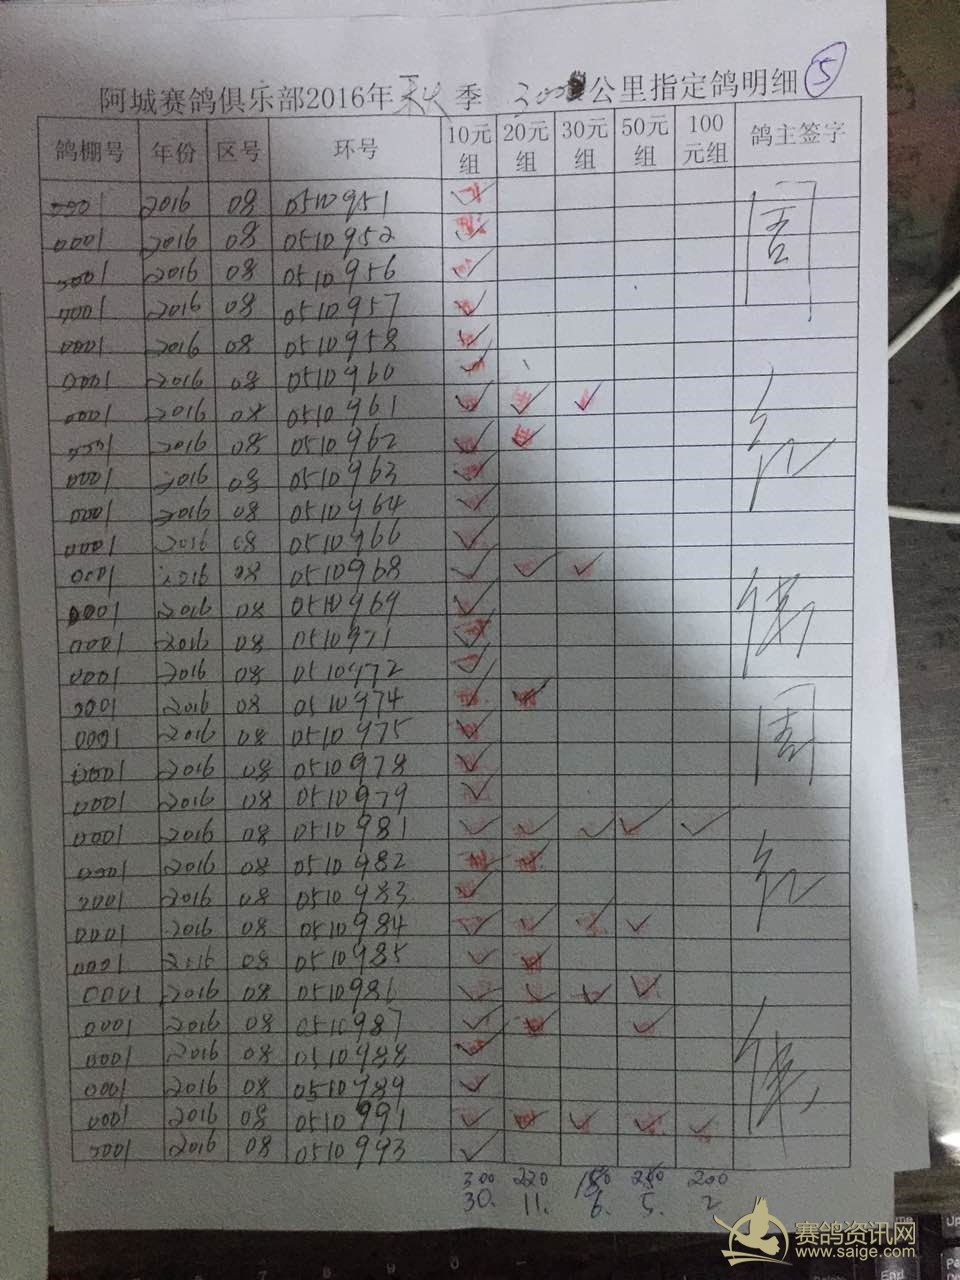 阿城赛鸽俱乐部2016年秋季 300公里指定鸽明细 5
鸽棚号 年份 区号 环号 10元组 20元组 30元组 50元组 100元组 鸽主签字
0001 2016 08 0510951 ✓
0001 2016 08 0510952 ✓
0001 2016 08 0510956 ✓
0001 2016 08 0510957 ✓
0001 2016 08 0510958 ✓
0001 2016 08 0510960 ✓
0001 2016 08 0510961 ✓ ✓ ✓
0001 2016 08 0510962 ✓ ✓
0001 2016 08 0510963 ✓
0001 2016 08 0510964 ✓
0001 2016 08 0510966 ✓
0001 2016 08 0510968 ✓ ✓ ✓
0001 2016 08 0510969 ✓
0001 2016 08 0510971 ✓
0001 2016 08 0510972 ✓
0001 2016 08 0510974 ✓ ✓
0001 2016 08 0510975 ✓
0001 2016 08 0510978 ✓
0001 2016 08 0510979 ✓
0001 2016 08 0510981 ✓ ✓ ✓ ✓ ✓
0001 2016 08 0510982 ✓ ✓
0001 2016 08 0510983 ✓
0001 2016 08 0510984 ✓ ✓ ✓ ✓
0001 2016 08 0510985 ✓ ✓
0001 2016 08 0510986 ✓ ✓ ✓ ✓
0001 2016 08 0510987 ✓ ✓ ✓
0001 2016 08 0510988 ✓
0001 2016 08 0510989 ✓
0001 2016 08 0510991 ✓ ✓ ✓ ✓ ✓
0001 2016 08 0510993 ✓
300 220 180 250 200
30. 11. 6. 5. 2
赛鸽资讯网
www.saige.com